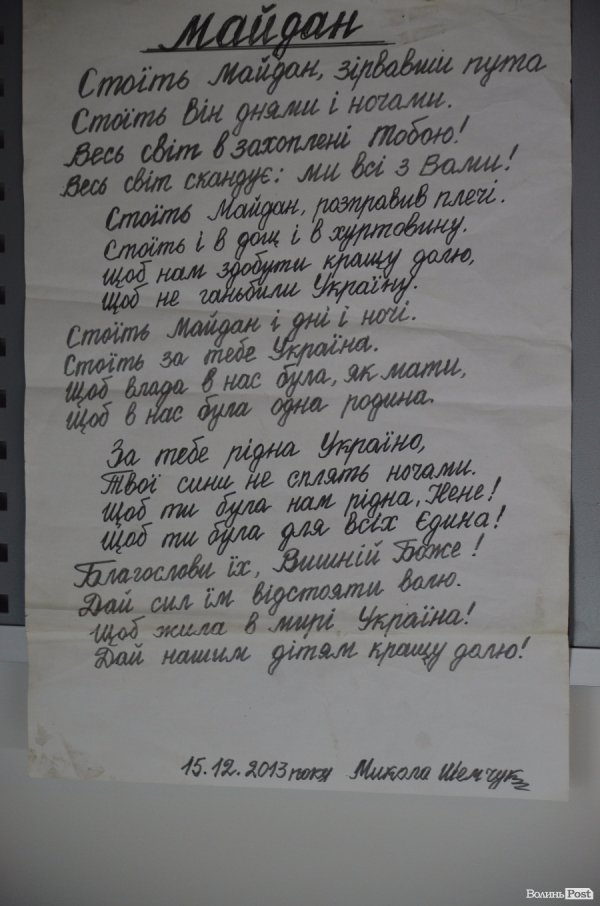 Майдан
Стоїть Майдан, зірвавши пута
Стоїть Він днями і ночами.
Весь світ в захоплені Тобою!
Весь світ скандує: ми всі з Вами!
Стоїть Майдан, розправив плечі.
Стоїть і в дощ і в хуртовину.
Щоб нам здобути кращу долю,
Щоб не ганьбили Україну.
Стоїть Майдан і дні і ночі.
Стоїть за тебе Україна.
Щоб влада в нас була, як мати,
Щоб в нас була одна родина.
За тебе рідна Україно,
Твої сини не сплять ночами.
Щоб ти була нам рідна, Нене!
Щоб ти була для всіх Єдина!
Благослови їх, Вишній Боже!
Дай сил їм відстояти волю.
Щоб жила в мирі Україна!
Дай нашим дітям кращу долю!
15.12.2013 року Микола Шемчук
ВолиньPost